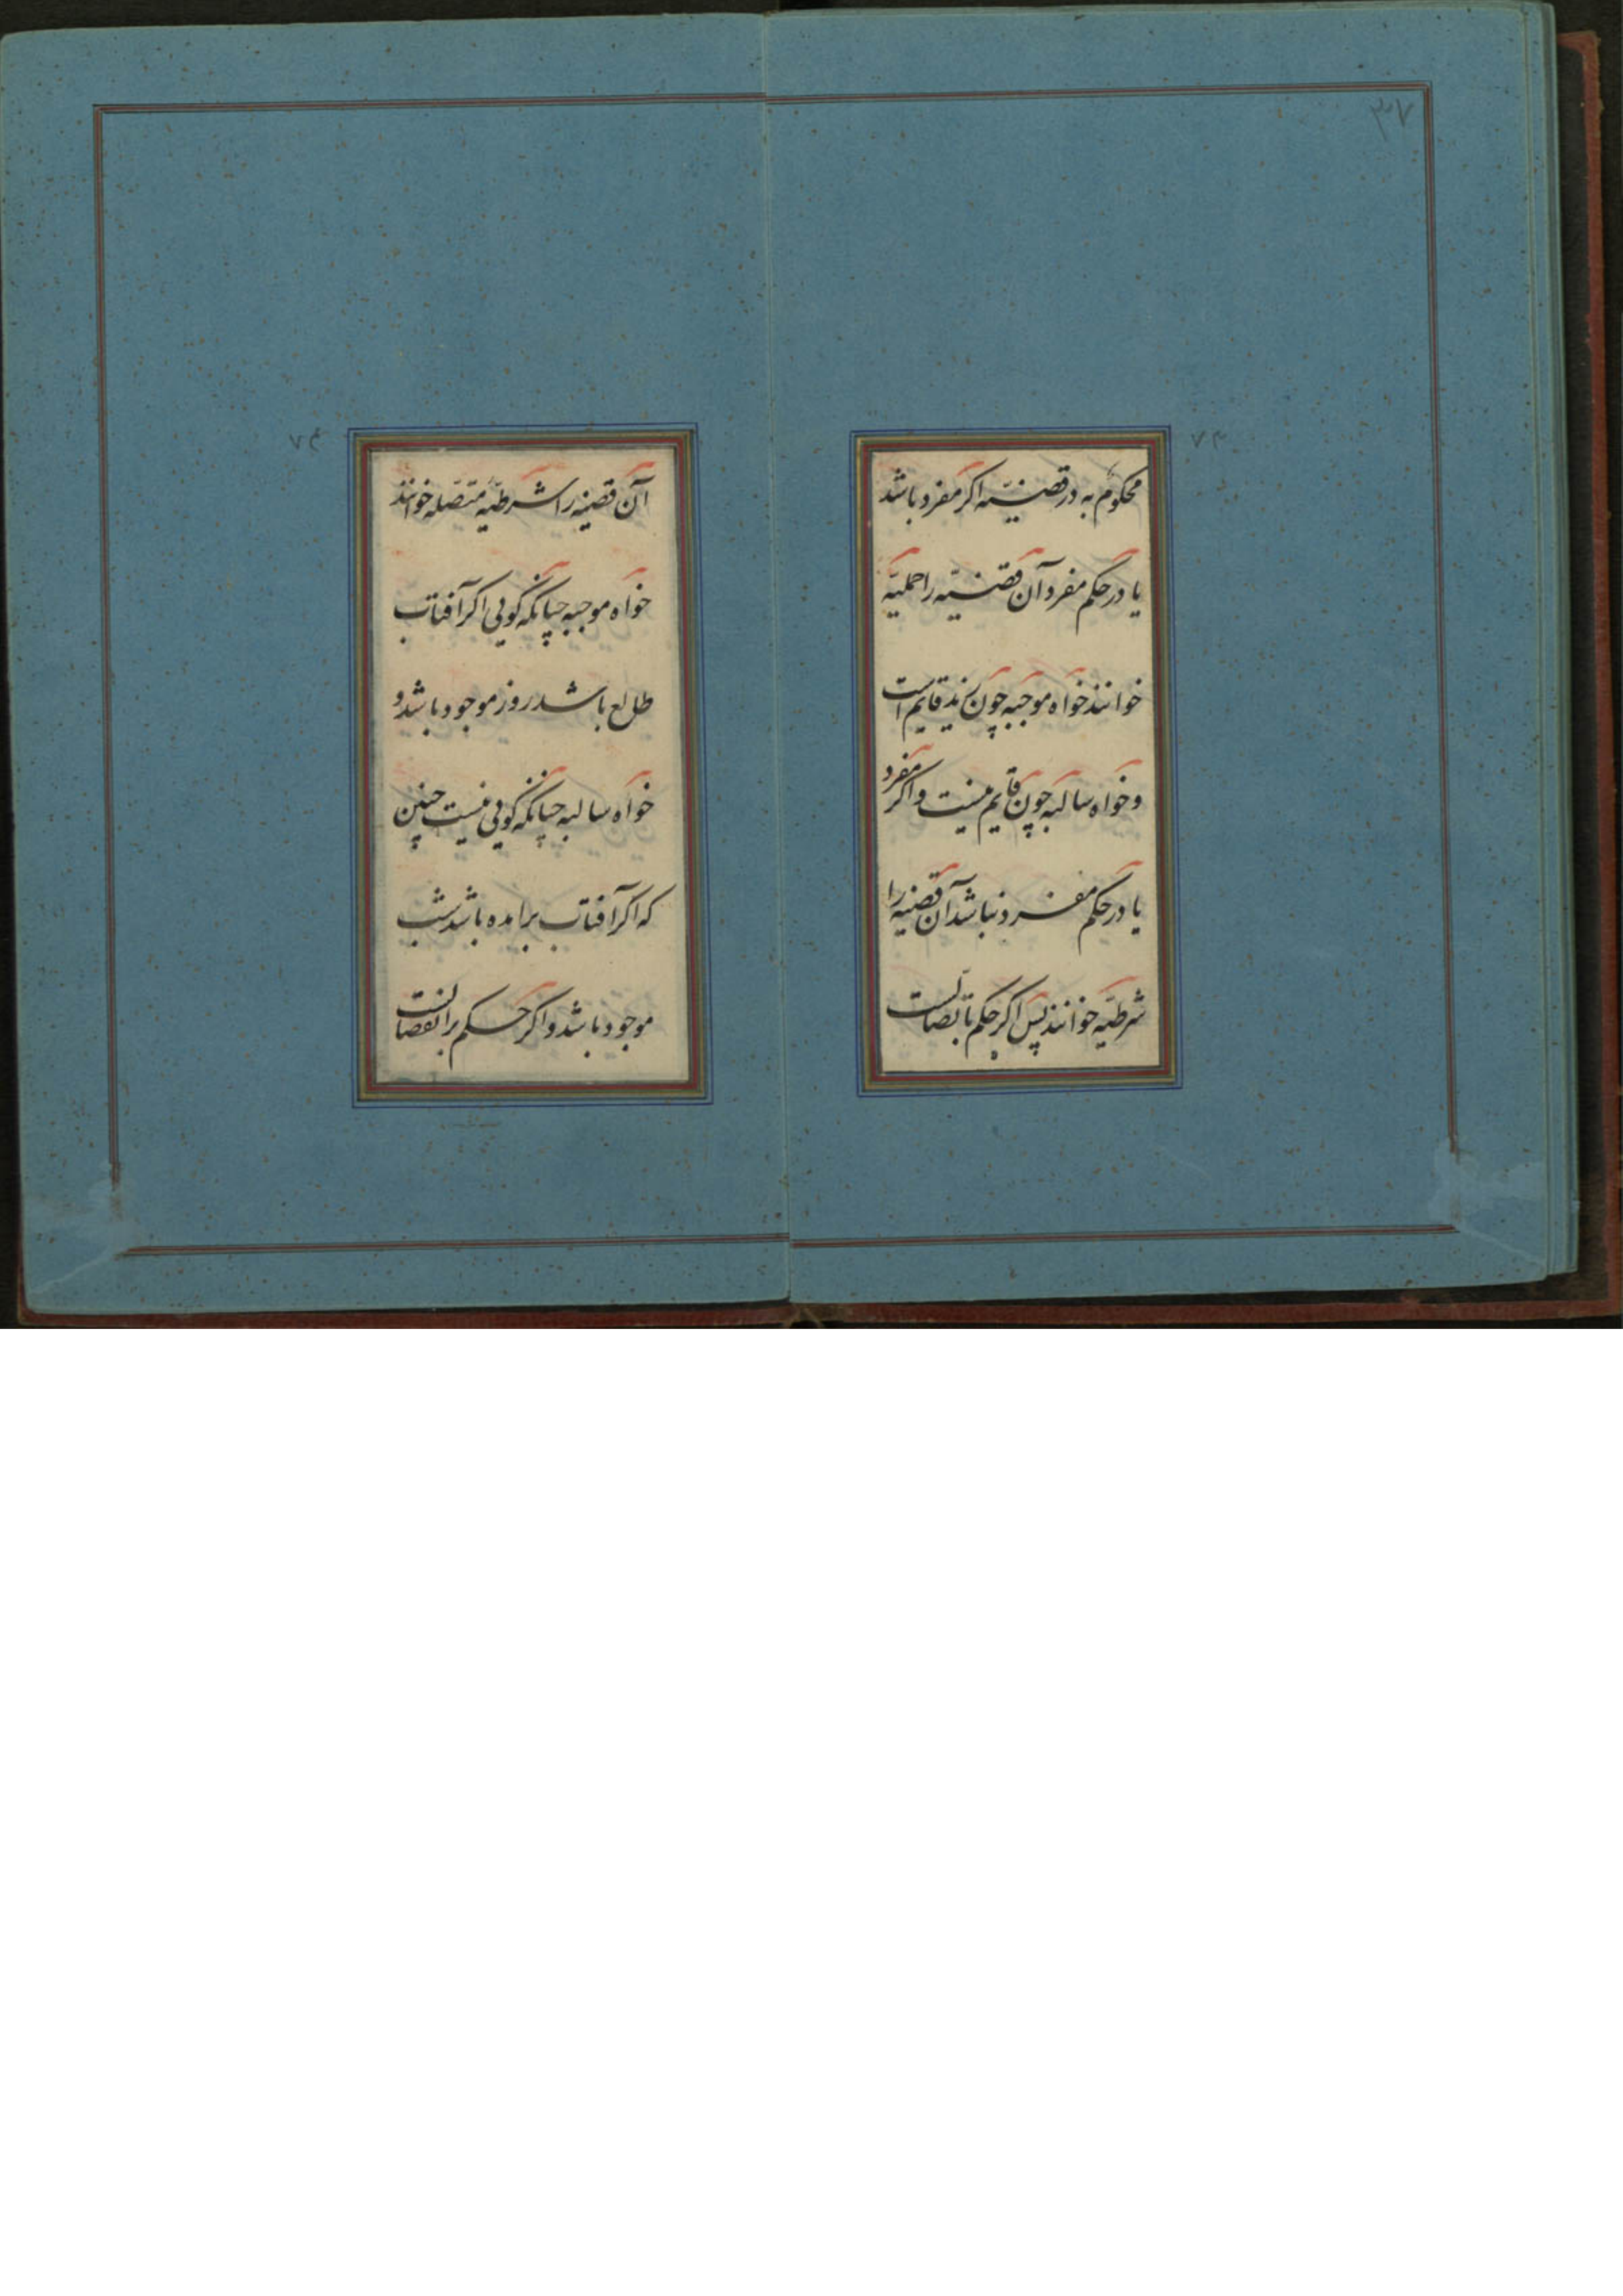 ۳۷
۷۳
محکوم به در قضیّه اکر مفرد باشد
یا در حکم مفرد آن قضیّه را حملیّه
خوانند خواه موجبه چون زید قایم است
و خواه سالبه چون قایم نیست و اکر مفرد
یا در حکم مفرد نباشد آن قضیه را
شرطیّه خوانند پس اکر حکم باتصالست
۷۴
آن قضیه را شرطیّه متّصله خوانند
خواه موجبه چنانکه کویی اکر آفتاب
طالع باشد روز موجود باشد و
خواه سالبه چنانکه کویی نیست چنین
که اکر آفتاب برامده باشد شب
موجود باشد و اکر حکم بانفصالست